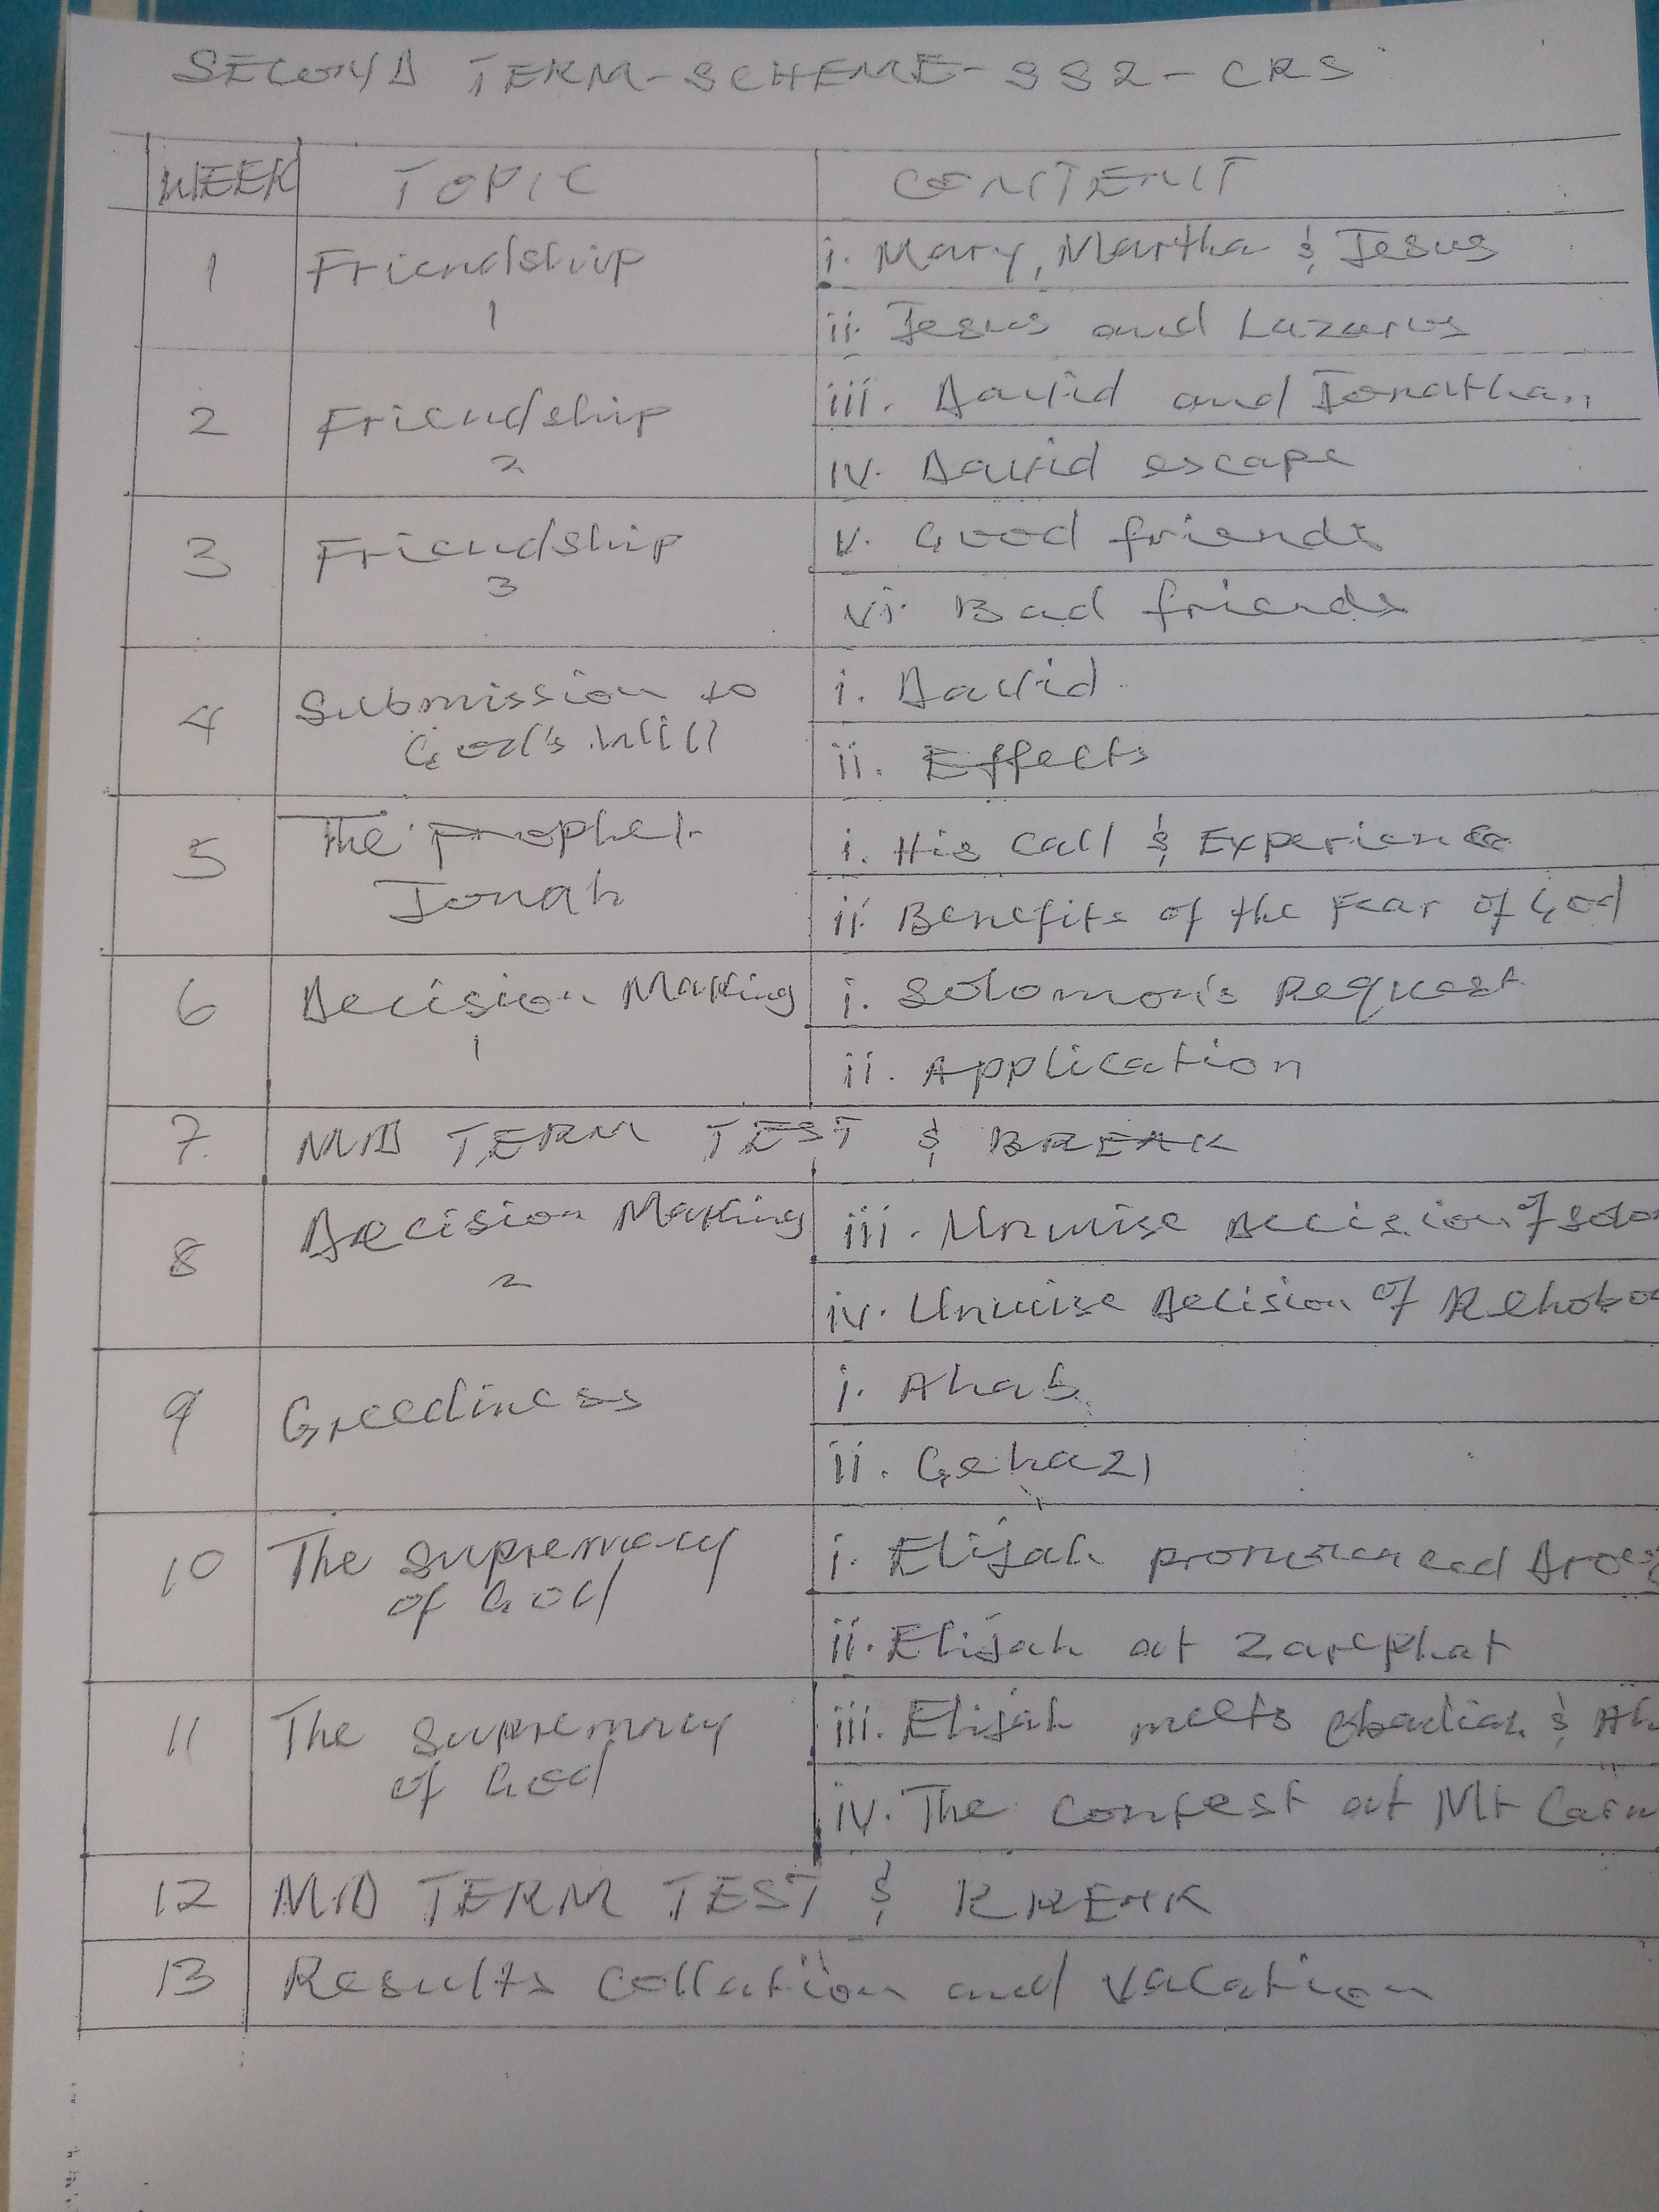 SECOND TERM-SCHEME-SS2-CRS
WEEK TOPIC CONTENT
1 Friendship 1
i. Mary, Martha & Jesus
ii. Jesus and Lazarus
2 Friendship 2
iii. David and Jonathan
iv. David escape
3 Friendship 3
v. Good friends
vi. Bad friends
4 Submission to
God's Will
i. David
ii. Effects
5 The prophet
Jonah
i. His call & Experience
ii. Benefits of the Fear of God
6 Decision Making 1
i. Solomon's Request
ii. Application
7. MID TERM TEST & BREAK
8 Decision Making 2
iii. Unwise Decision of Solo
iv. Unwise Decision of Rehobo
9 Greediness
i. Ahab
ii. Gehazi
10 The Supremacy
of God
i. Elijah pronounced
ii. Elijah at Zarephat
11 The Supremacy
of God
iii. Elijah meets Obadiah & Ah
iv. The Contest at Mt Carm
12 MID TERM TEST & BREAK
13 Results Collation and Vacation